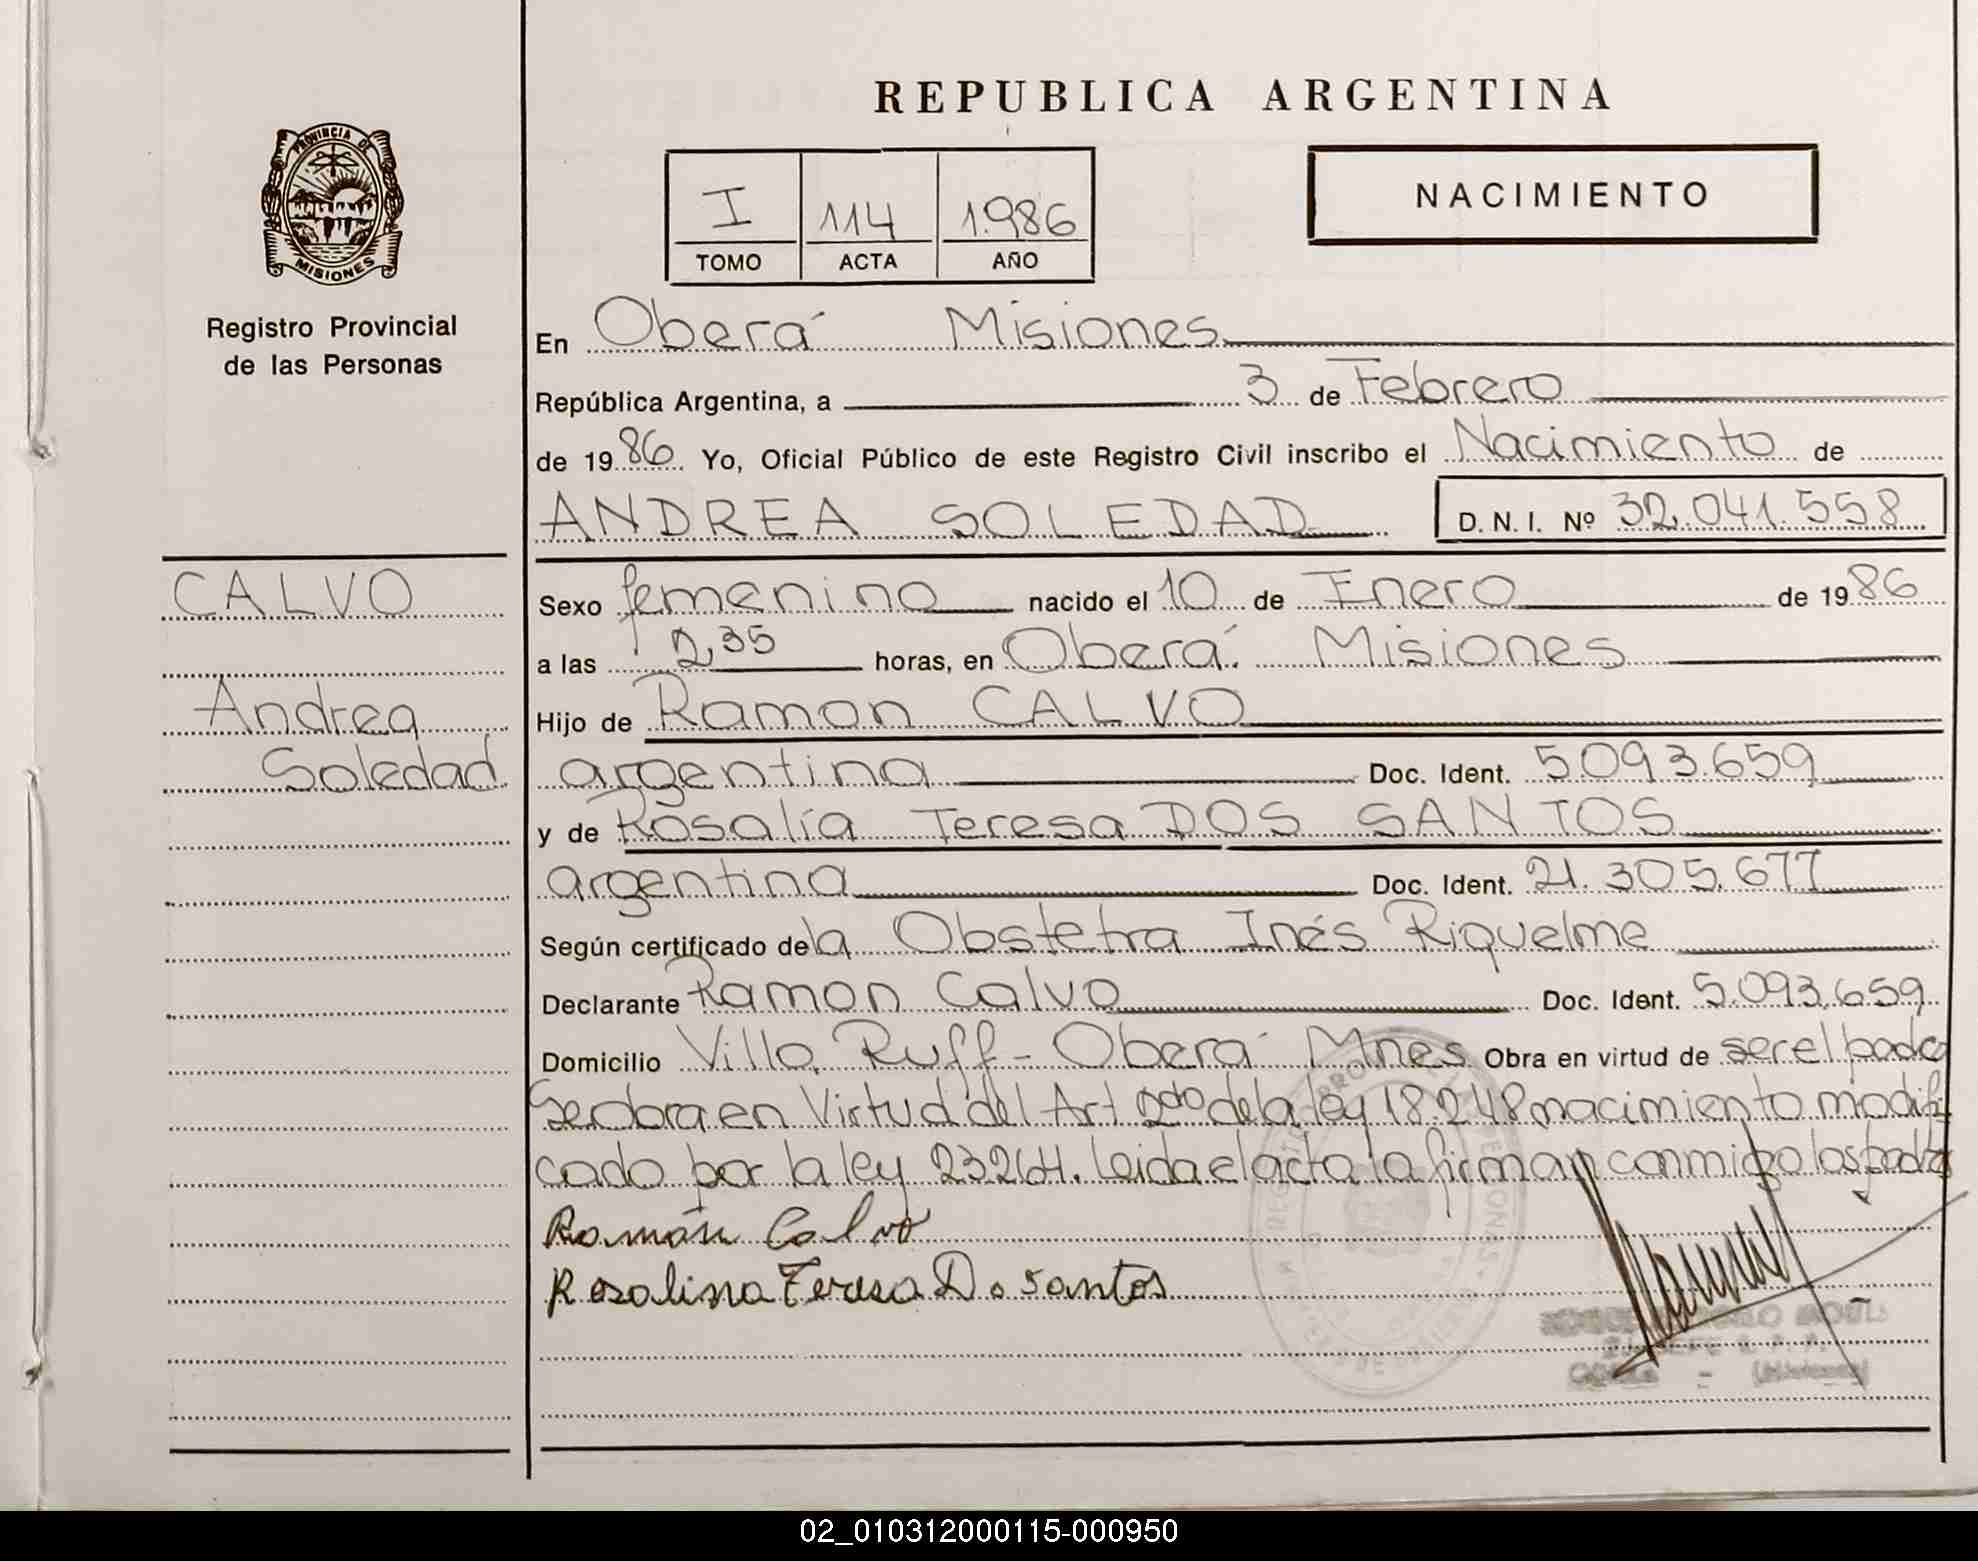 REPUBLICA ARGENTINA
PROVINCIA DE
MISIONES
Registro Provincial
de las Personas
I 114 1.986
TOMO ACTA AÑO
NACIMIENTO
En Oberá Misiones
República Argentina, a 3 de Febrero
de 1986 Yo, Oficial Público de este Registro Civil inscribo el Nacimiento de
ANDREA SOLEDAD D. N. I. Nº 32.041.558
CALVO
Andrea
Soledad
Sexo femenino nacido el 10 de Enero de 1986
a las 2,35 horas, en Oberá Misiones
Hijo de Ramon CALVO
argentina Doc. Ident. 5.093.659
y de Rosalía Teresa DOS SANTOS
argentina Doc. Ident. 21.305.677
Según certificado de la Obstetra Inés Riquelme
Declarante Ramon Calvo Doc. Ident. 5.093.659
Domicilio Villa Ruff - Oberá Mnes Obra en virtud de ser el padre
Se obra en Virtud del Art 2do de la ley 18.248 nacimiento modifi
cado por la ley 23264. Leida el acta la firman conmigo los padres
Ramón Calvo
Rosalina Teresa Do santos
02_010312000115-000950